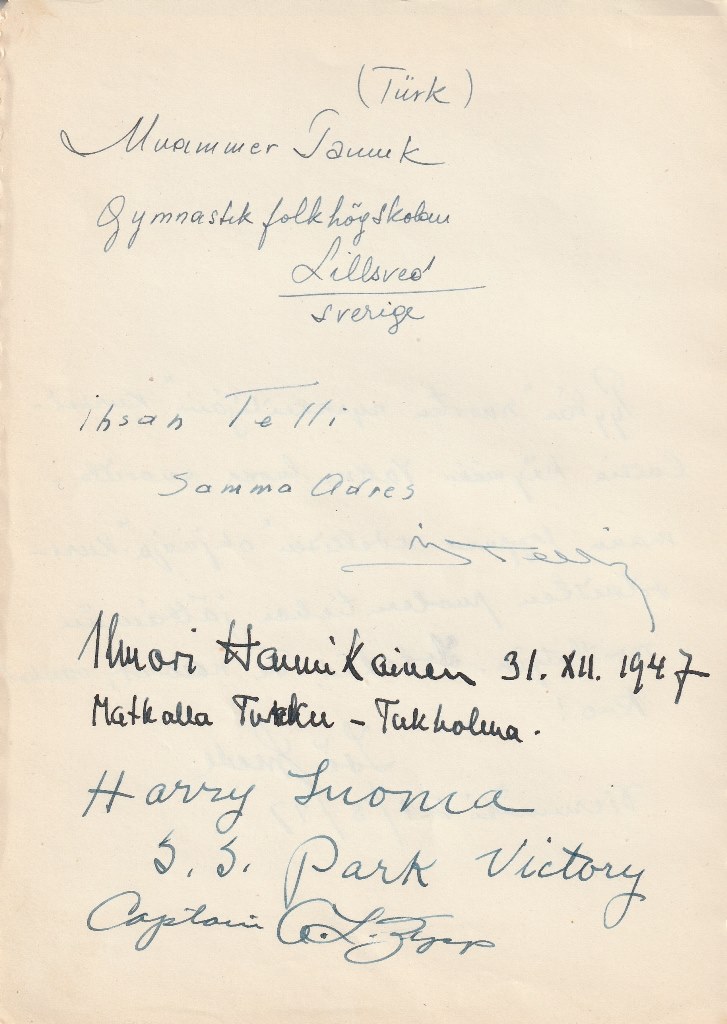 (Türk)
Muammer
Gymnastik folkhögskolan
Lillsved
Sverige
ihsan Telli
Samma Adres
Ilmari Hannikainen 31. XII. 1947
Matkalla Turku - Tukholma.
Harry Suoma
S. S. Park Victory
Captain A. L. Zepp